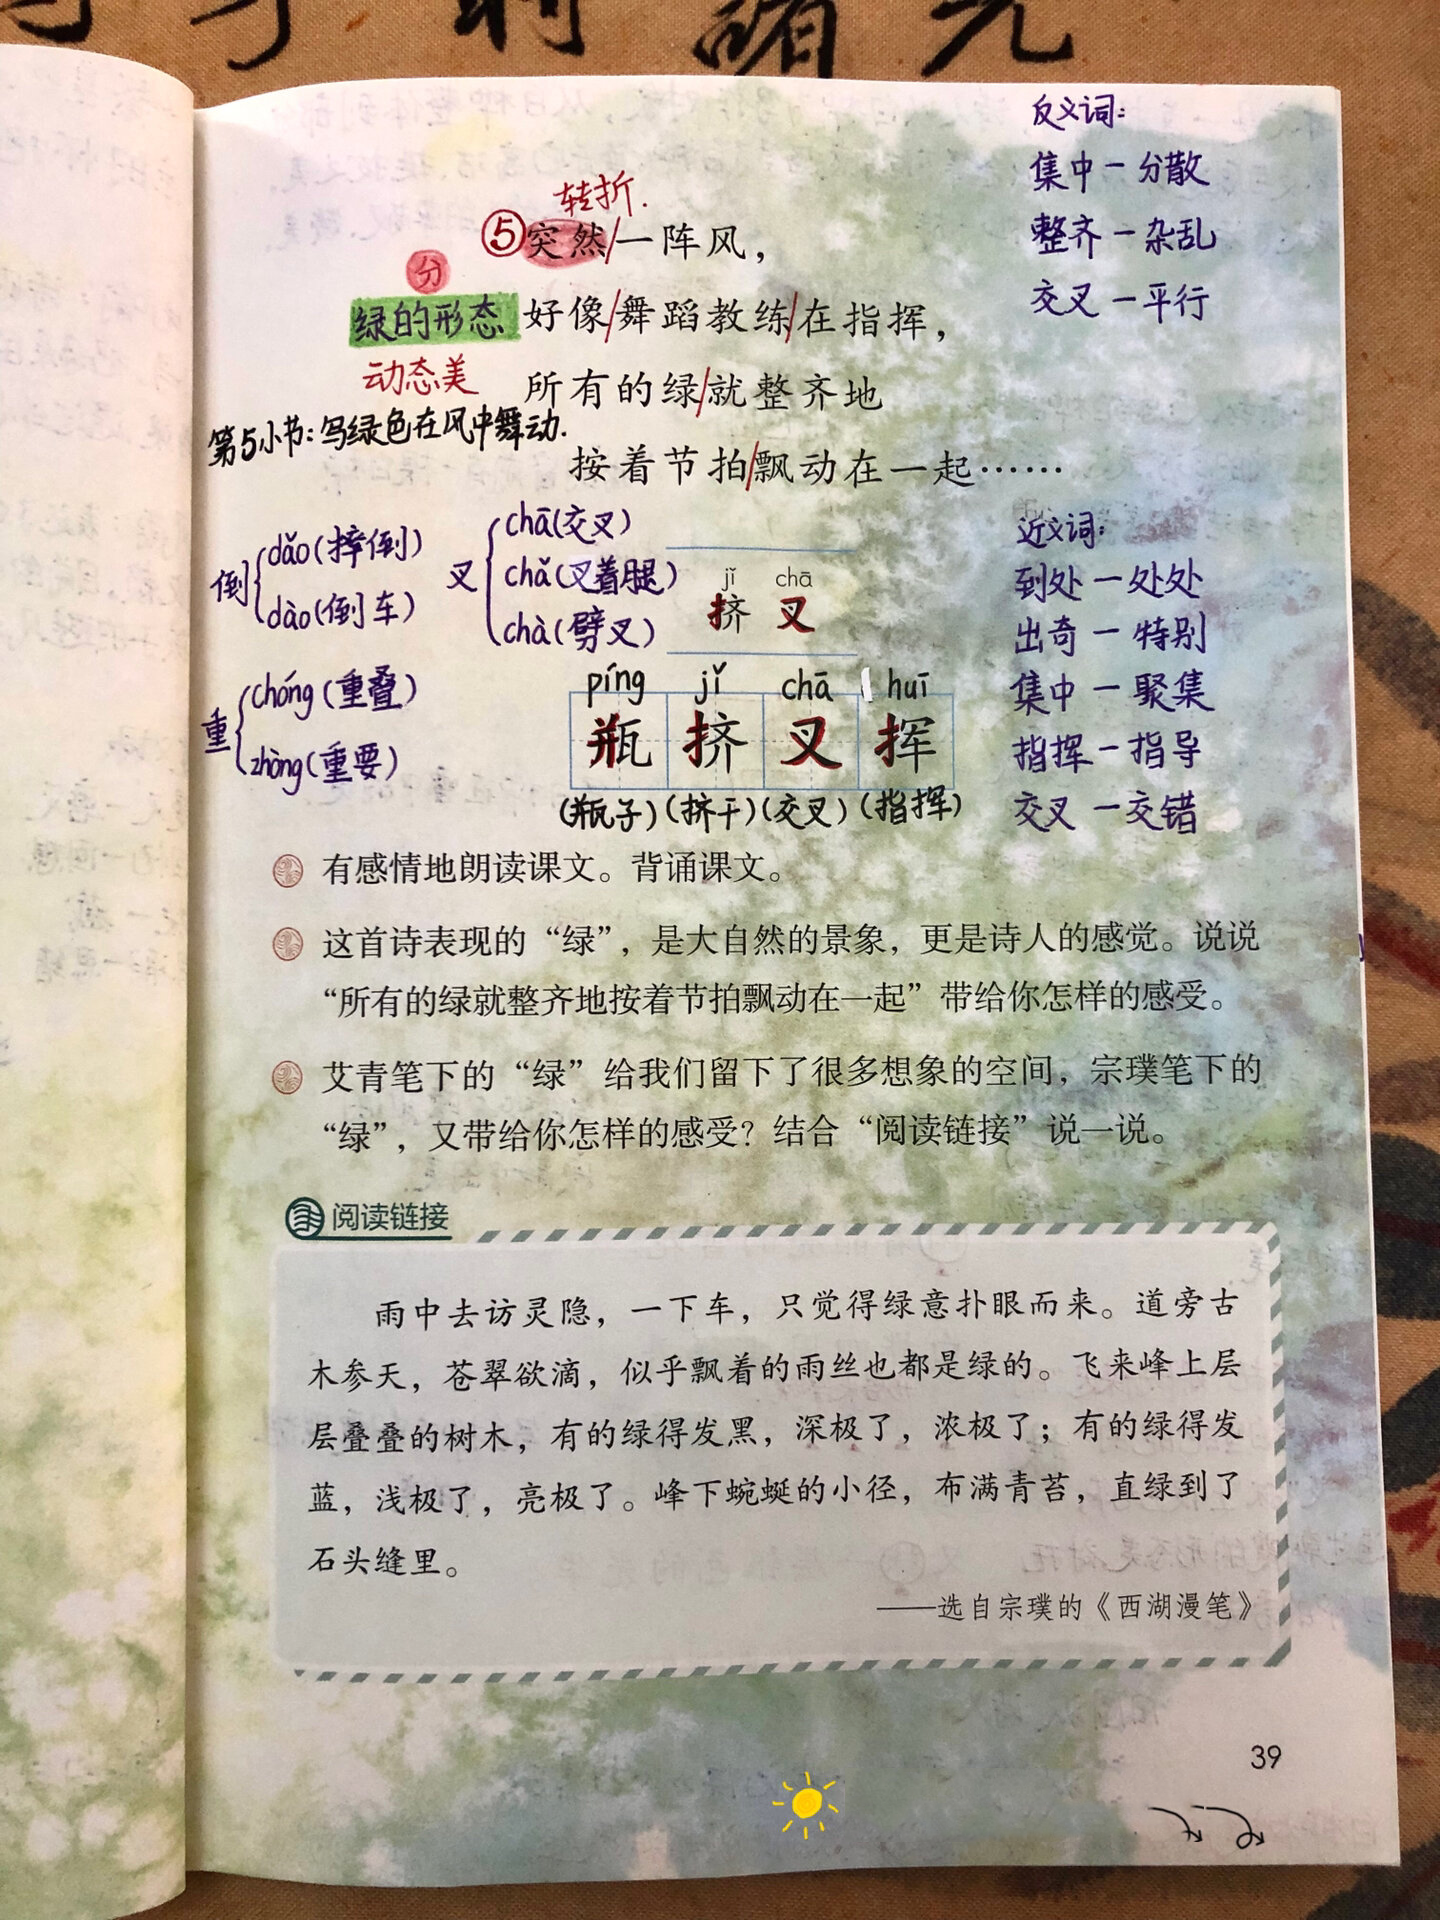 反义词：
集中－分散
整齐－杂乱
交叉－平行
转折.
⑤突然/一阵风，
分
绿的形态
好像/舞蹈教练/在指挥，
动态美
所有的绿/就整齐地
第5小节：写绿色在风中舞动.
按着节拍/飘动在一起……
倒
dǎo(摔倒)
dào(倒车)
叉
chā(交叉)
chǎ(叉着腿)
chà(劈叉)
jǐ chā
挤 叉
重
chóng(重叠)
zhòng(重要)
píng jǐ chā huī
瓶 挤 叉 挥
(瓶子)(挤干)(交叉)(指挥)
近义词：
到处－处处
出奇－特别
集中－聚集
指挥－指导
交叉－交错
有感情地朗读课文。背诵课文。
这首诗表现的“绿”，是大自然的景象，更是诗人的感觉。说说
“所有的绿就整齐地按着节拍飘动在一起”带给你怎样的感受。
艾青笔下的“绿”给我们留下了很多想象的空间，宗璞笔下的
“绿”，又带给你怎样的感受？结合“阅读链接”说一说。
阅读链接
雨中去访灵隐，一下车，只觉得绿意扑眼而来。道旁古
木参天，苍翠欲滴，似乎飘着的雨丝也都是绿的。飞来峰上层
层叠叠的树木，有的绿得发黑，深极了，浓极了；有的绿得发
蓝，浅极了，亮极了。峰下蜿蜒的小径，布满青苔，直绿到了
石头缝里。
——选自宗璞的《西湖漫笔》
39